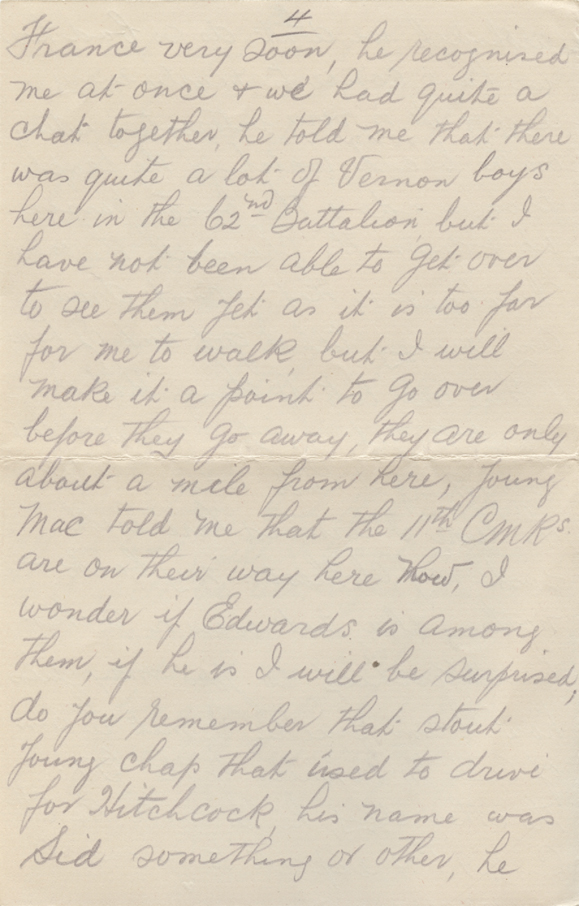 4
France very soon, he recognised
me at once & we had quite a
chat together, he told me that there
was quite a lot of Vernon boys
here in the 62nd Battalion, but I
have not been able to get over
to see them yet as it is too far
for me to walk, but I will
make it a point to go over
before they go away, they are only
about a mile from here, young
Mac told me that the 11th CMRs
are on their way here now, I
wonder if Edwards is among
them, if he is I will be surprised,
do you remember that stout
young chap that used to drive
for Hitchcock, his name was
Sid something or other, he